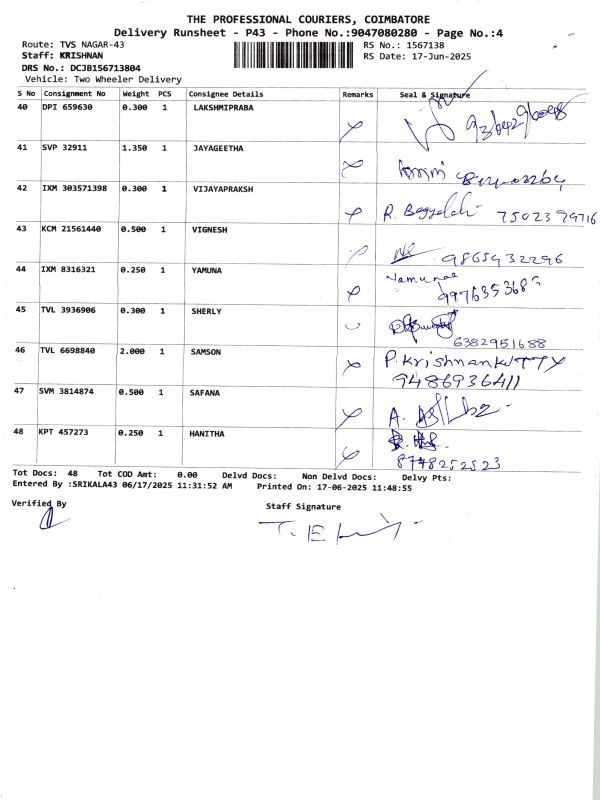 THE PROFESSIONAL COURIERS, COIMBATORE
Delivery Runsheet - P43 - Phone No.:9047080280 - Page No.:4
Route: TVS NAGAR-43 RS No.: 1567138
Staff: KRISHNAN RS Date: 17-Jun-2025
DRS No.: DCJB156713804
Vehicle: Two Wheeler Delivery
S No Consignment No Weight PCS Consignee Details Remarks Seal & Signature
40 DPI 659630 0.300 1 LAKSHMIPRABA
41 SVP 32911 1.350 1 JAYAGEETHA
42 IXM 303571398 0.300 1 VIJAYAPRAKSH
R. 7502399716
43 KCM 21561440 0.500 1 VIGNESH
9865932296
44 IXM 8316321 0.250 1 YAMUNA
Yamunaa
45 TVL 3936906 0.300 1 SHERLY
6382951688
46 TVL 6698840 2.000 1 SAMSON
P.KrishnanKUTTY
9486936411
47 SVM 3814874 0.500 1 SAFANA
A.
48 KPT 457273 0.250 1 HANITHA
8778252523
Tot Docs: 48 Tot COD Amt: 0.00 Delvd Docs: Non Delvd Docs: Delvy Pts:
Entered By :SRIKALA43 06/17/2025 11:31:52 AM Printed On: 17-06-2025 11:48:55
Verified By Staff Signature